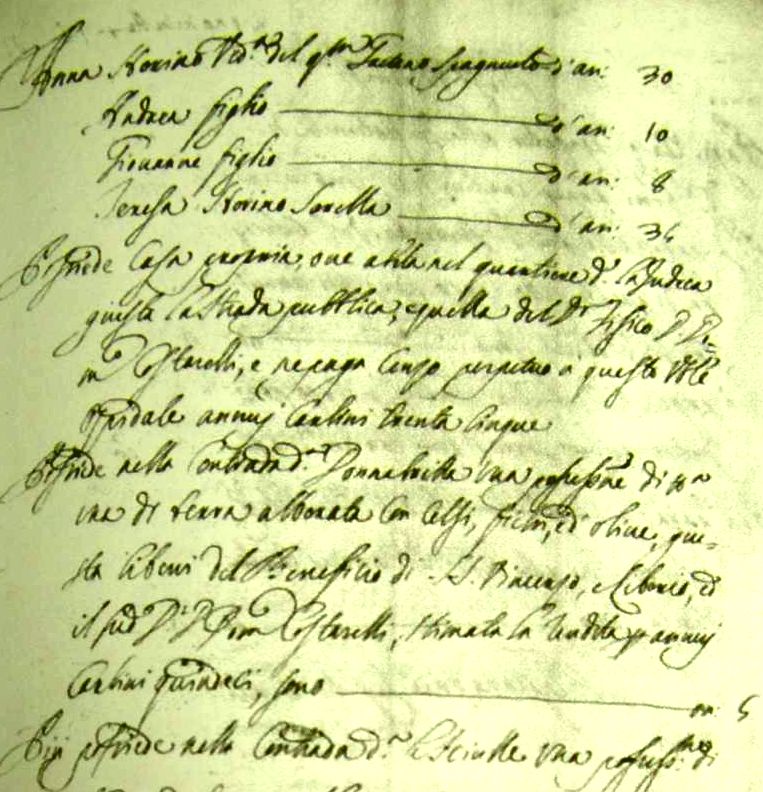 Anna Norino Ved.ª del q.m Gaetano Spagnuolo d'an: 30
Andrea figlio d'an: 10
Giovanne figlio d'an: 8
Teresa Norino Sorella d'an: 34
Possiede Casa propria, ove abita nel quartiere d.º la Judeca
giusta la strada pubblica, e quella del D.r Fisico D. Do=
m.º Costarelli, e ne paga Censo perpetuo a questo V.ble
Ospidale annui Carlini trenta Cinque
Possiede nella Contrada d.ª una possess.ne di
una di terra alborata con Celsi, fichi, ed olive, giu=
sta li beni del Beneficio di S. Vincenzo, e Liborio, ed
il sud.º D.r D. Dom.º Costarelli, stimata la rendita p annui
Carlini quindeci, sono on: 5
Più possiede nella Contrada d.ª una possess.ne di